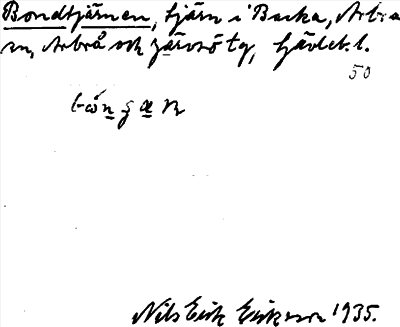 Bondtjärnen, tjärn i Backa, Arbrå
sn, Arbrå och Järvsö tg, Gävleb. l.
50
Nils Erik Eriksson 1935.